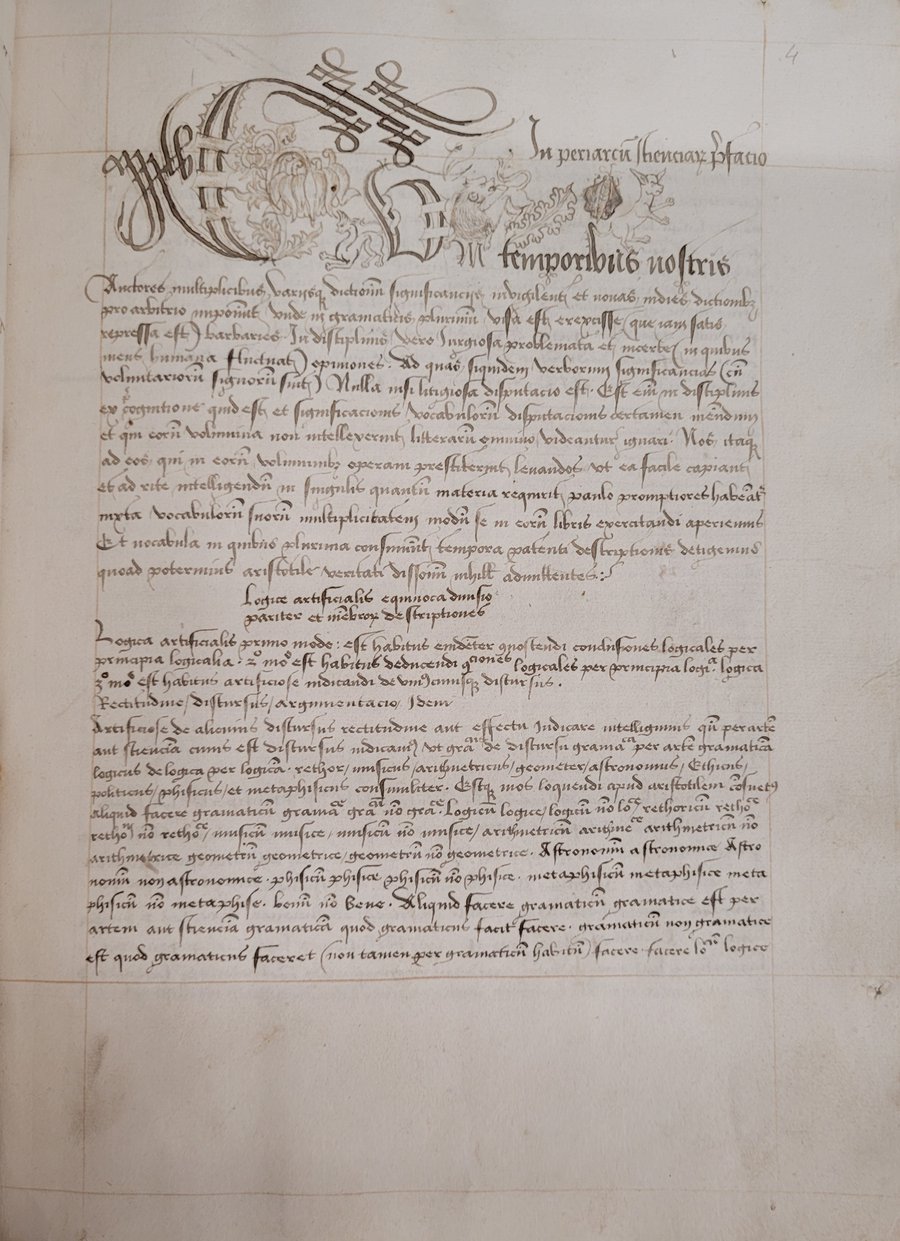 4
In periarcū scienciarꝝ p̄facio
Cum temporibus nostris
Auctores multiplicibus variisqꝫ dictionū significanciis invigilent et novas indies dictionibꝫ
pro arbitrio imponūt, vnde in gramaticis plurimū visa est erexisse (que iam satis
repressa est) barbaries. In disciplinis vero Jurgiosa problemata et incerte (in quibus
mens humana fluctuat) opiniones. Ad quas siquidem verborum significancias (cū
voluntariorū signorū sint) Nulla nisi litigiosa disputacio est. Est eim̄ in disciplinis
ex cognitione quid est et significacionis vocabulorū disputacionis certamen
et qui eorū volumina non intellexerint litterarū omnino videantur ignari. Nos itaqꝫ
ad eos qui in eorū voluminibꝫ operam prestiterint levandos vt ea facile capiant
et ad rite intelligendū in singulis quantū materia requirit paulo promptiores habeāt̄
iuxta vocabulorū suorū multiplicitatem modū se in eorū libris exercitandi aperiemus
Et vocabula in quibus plurima consumūt tempora patenti descriptionis detigemus
quoad poterimus aristotile veritati dissonū nihill admittentes:
Logice artificialis equiuoca diuisio
pariter et mēbroꝝ descriptiones
Logica artificialis primo modo: est habitus evidēter gnoscendi conclusiones logicales per
principia logicalia. 2º moº est habitus deducendi 9ciones logicales per principia logiᵃ. logica
3º moº est habitus artificiose iudicandi de vniꝰcuiusqꝫ discursus.
Rectitudine / discursus / argumentacio Idem
Artificiose de alicuius discursus rectitudine aut effectu Judicare intelligimus qn̄ per artē
aut scienciā cuius est discursus iudicamꝰ, vt graᶜᵘˢ de discursu gramaᶜᵃ per artē gramaticā
logicus de logica per logicā. rethor / musicus / arithmetricus / geometer / astronomus / Ethicus /
politicus / phisicus / et metaphisicus consimiliter. Estqꝫ mos loquendi apud aristotilem cōsuetꝰ
aliquid facere gramaticū gramaᶜᵉ graᶜᵘᵐ nō graᶜᵉ. Logicū logice / logicū nō loᶜᵉ rethoricū rethoᶜᵉ
rethoᵘᵐ nō rethoᶜᵉ / musicū musice / musicū nō musice / arithmetricū arithmeᶜᵉ arithmetricū nō
arithmetrice geometrū geometrice / geometrū nō geometrice. Astronomū astronomice Astro
nomū non astronomice. phisicū phisice phisicū nō phisice. metaphisicū metaphisice meta
phisicū nō metaphise. benn̄ nō bene. Aliquid facere gramaticū gramatice est per
artem aut scienciā gramaticā quod gramaticus facit facere. gramaticū non gramatice
est quod gramaticus faceret (non tamen per gramaticū habitū) facere. facere loᵘᵐ logice